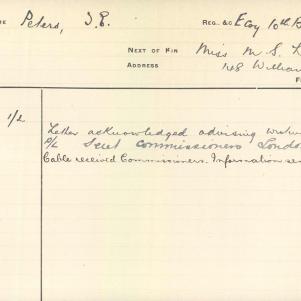 ME Peters, J.E. REG. &C E Coy 10th
NEXT OF KIN Miss M. S.
ADDRESS 148 William
1/2 Letter acknowledged advising
P/L Scut Commissioners London
Cable received Commissioners. Information sen